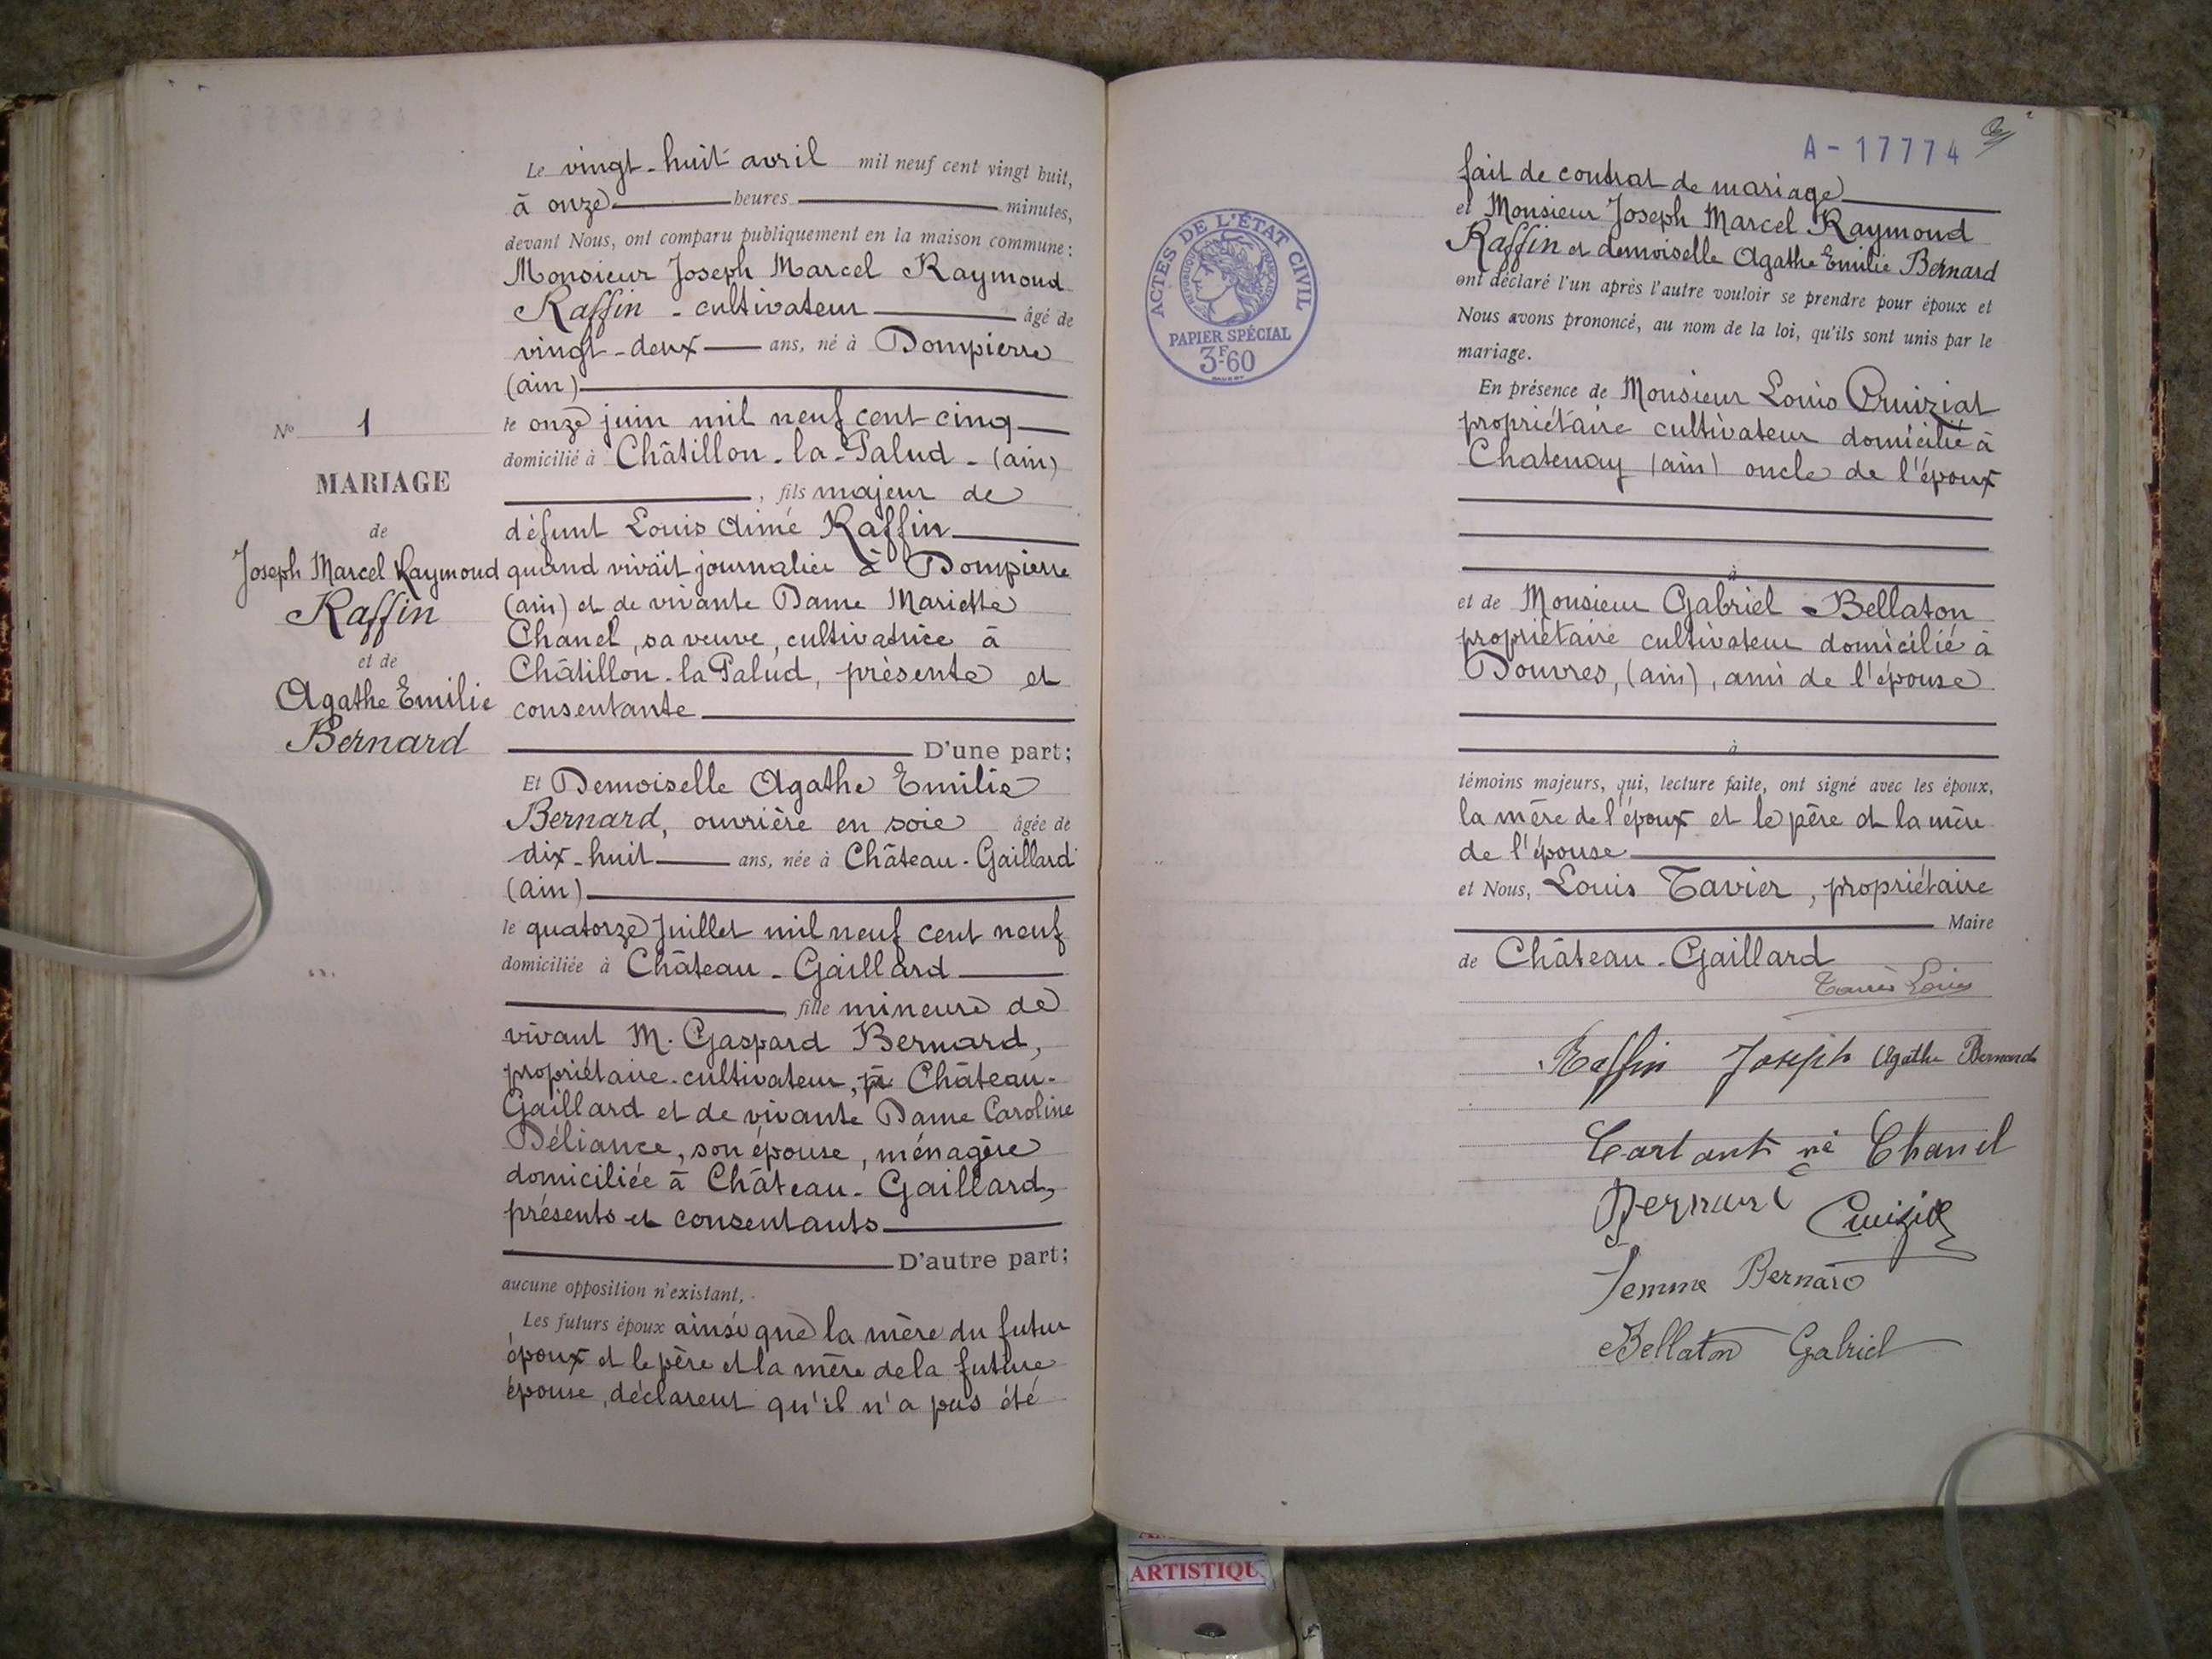 Le vingt-huit avril mil neuf cent vingt huit,
à onze heures minutes,
devant Nous, ont comparu publiquement en la maison commune :
Monsieur Joseph Marcel Raymond
Raffin - cultivateur âgé de
vingt-deux ans, né à Dompierre
(ain)
le onze juin mil neuf cent cinq
domicilié à Châtillon-la-Palud - (ain)
, fils majeur de
défunt Louis Aimé Raffin
quand vivait journalier à Dompierre
(ain) et de vivante Dame Mariette
Chanel, sa veuve, cultivatrice à
Châtillon-la Palud, présente et
consentante
D'une part ;
Et Demoiselle Agathe Emilie
Bernard, ouvrière en soie âgée de
dix-huit ans, née à Château-Gaillard
(ain)
le quatorze Juillet mil neuf cent neuf
domiciliée à Château-Gaillard
, fille mineure de
vivant M. Gaspard Bernard,
propriétaire-cultivateur, à Château-
Gaillard et de vivante Dame Caroline
Déliance, son épouse, ménagère
domiciliée à Château-Gaillard,
présents et consentants
D'autre part ;
aucune opposition n'existant,
Les futurs époux ainsi que la mère du futur
époux et le père et la mère de la future
épouse, déclarent qu'il n'a pas été
No 1
MARIAGE
de
Joseph Marcel Raymond
Raffin
et de
Agathe Emilie
Bernard
A-17774
ACTES DE L'ÉTAT CIVIL
RÉPUBLIQUE FRANÇAISE
PAPIER SPÉCIAL
3F60
fait de contrat de mariage
et Monsieur Joseph Marcel Raymond
Raffin et demoiselle Agathe Emilie Bernard
ont déclaré l'un après l'autre vouloir se prendre pour époux et
Nous avons prononcé, au nom de la loi, qu'ils sont unis par le
mariage.
En présence de Monsieur Louis Cruiziat
propriétaire cultivateur domicilié à
Chatenay (ain) oncle de l'époux
à
et de Monsieur Gabriel Bellaton
propriétaire cultivateur domicilié à
Douvres, (ain), ami de l'épouse
à
témoins majeurs, qui, lecture faite, ont signé avec les époux,
la mère de l'époux et le père et la mère
de l'épouse
et Nous, Louis Tavier, propriétaire
Maire
de Château-Gaillard
Tavier Louis
Raffin Joseph Agathe Bernard
né Chanel
Bernard
Femme Bernard
Bellaton Gabriel
ARTISTIQU